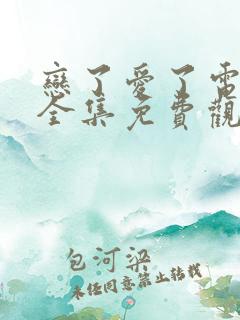 戀了愛了電
全集免費觀
包河梁
未經同意禁止轉載